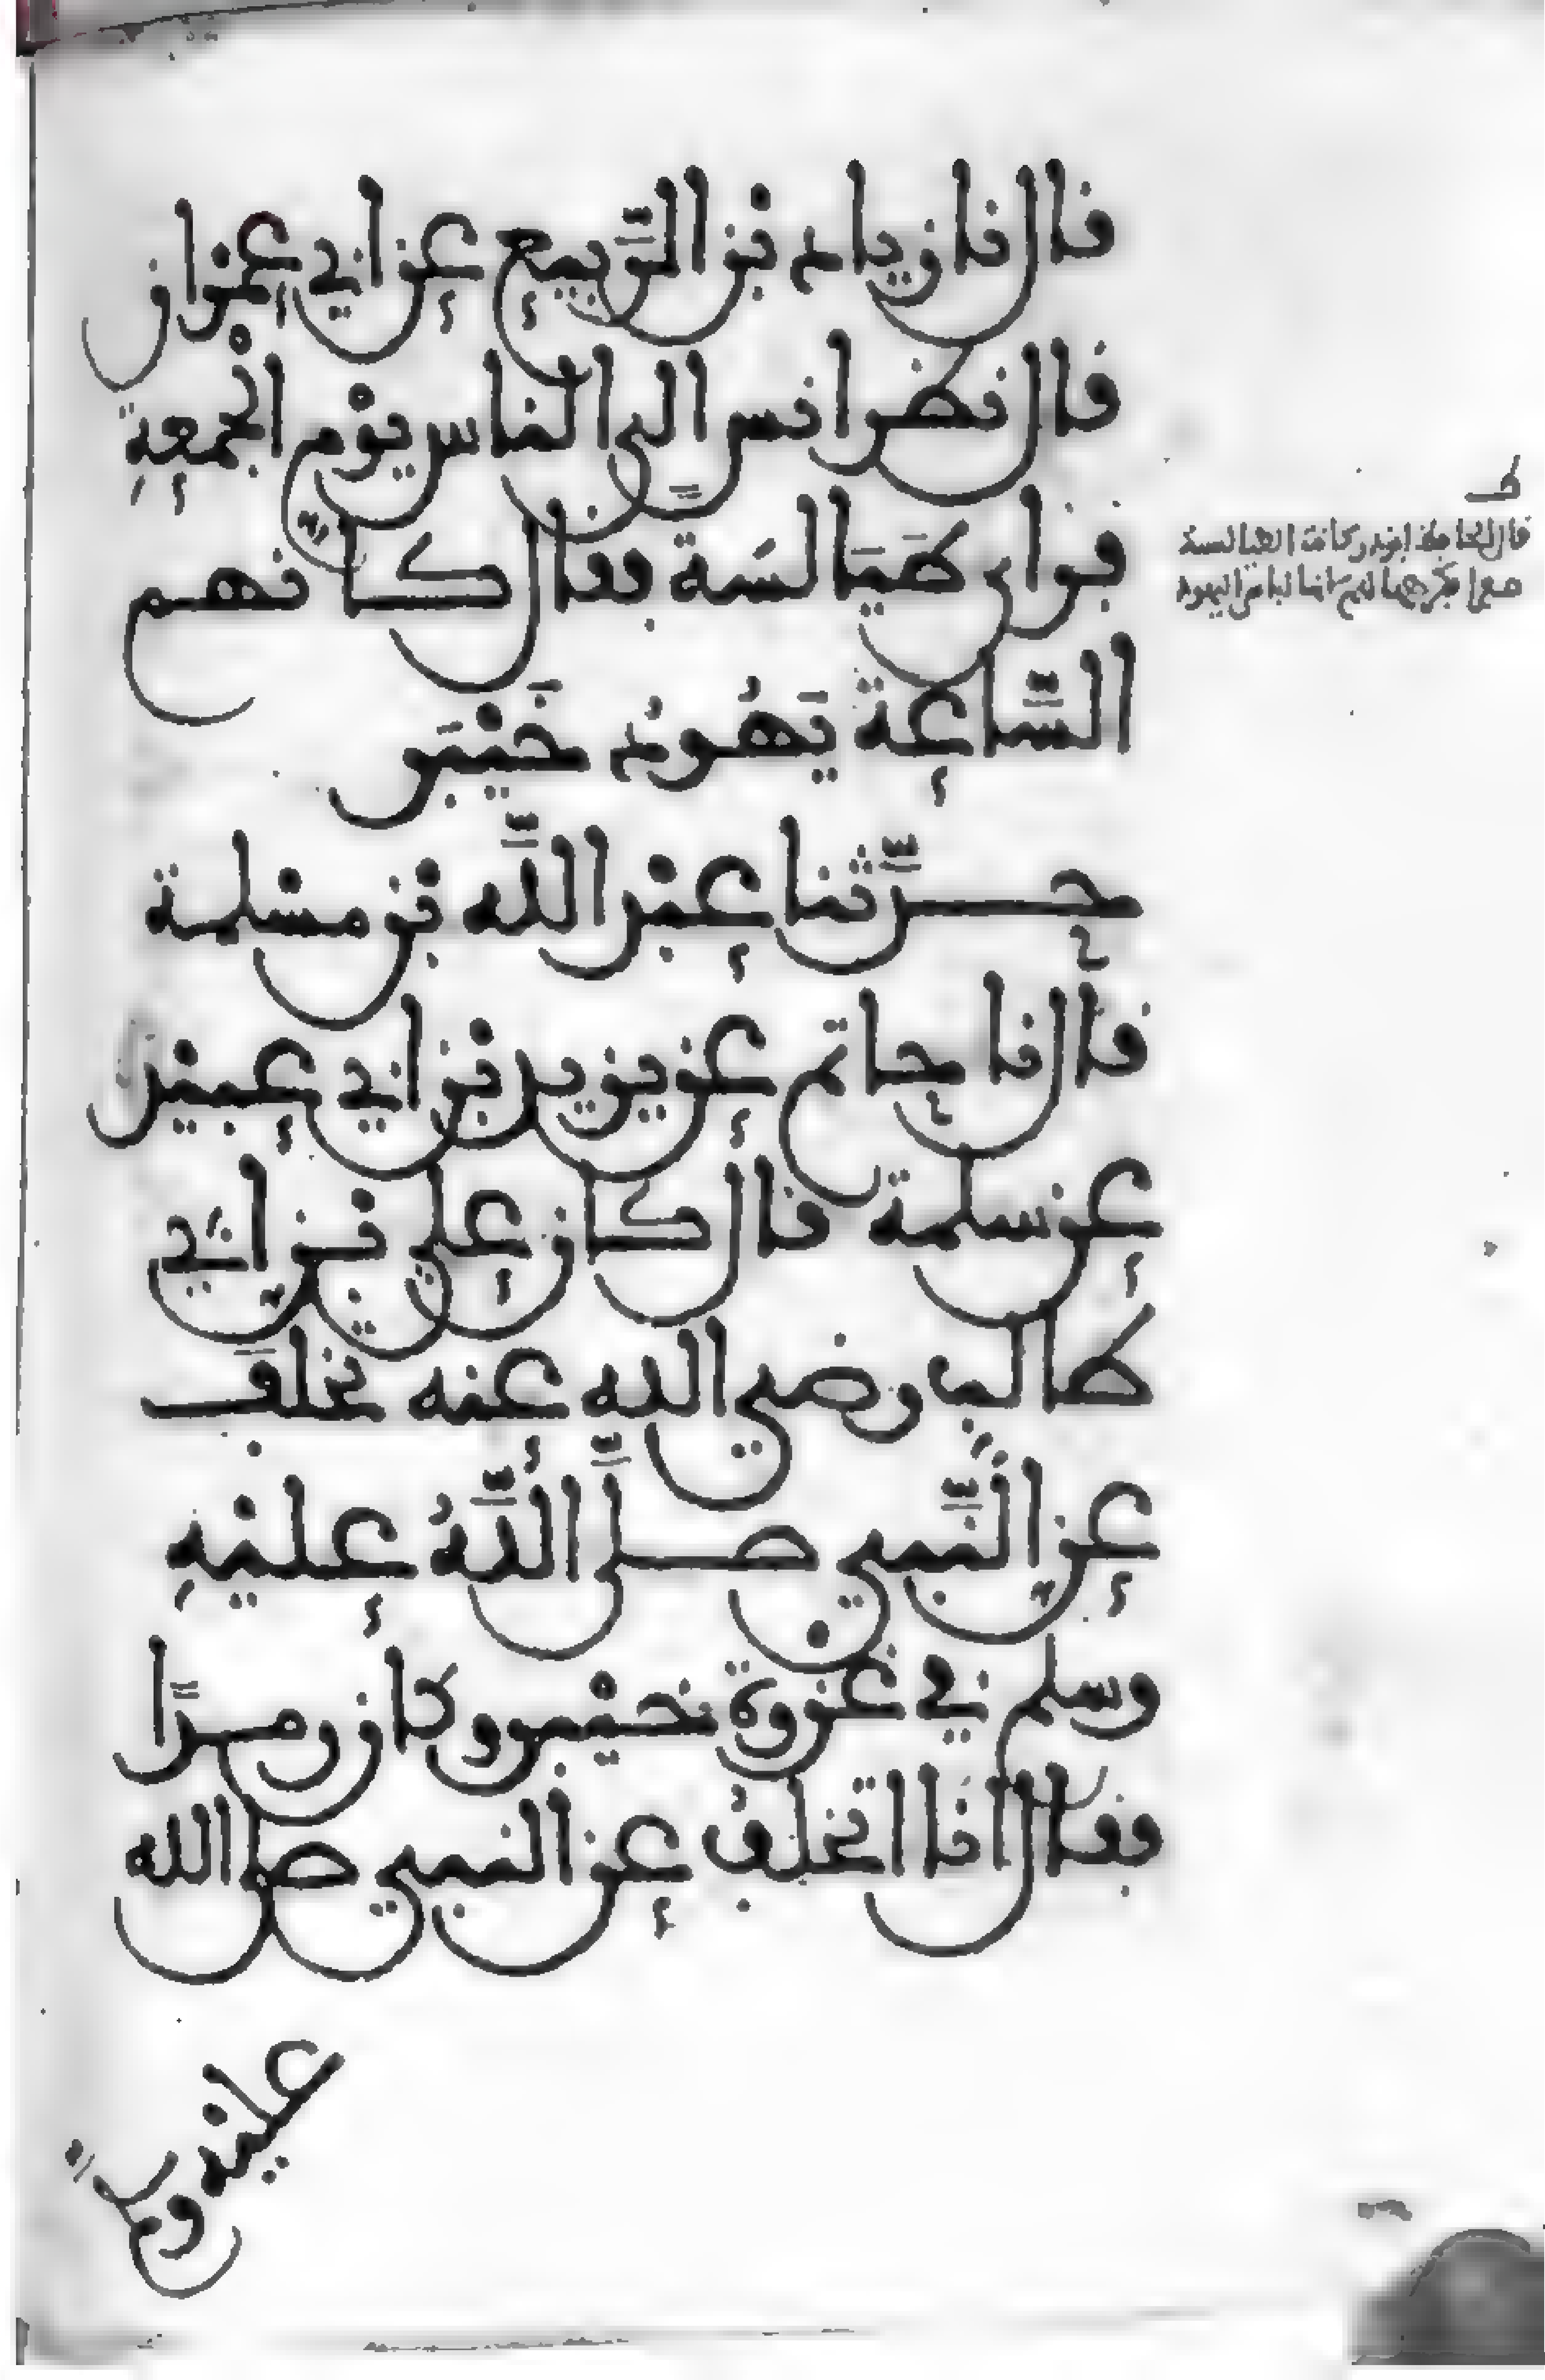 قال نا زياد بن الرَّبيع عن ابي عمْران
قال نظر انس الى الناس يوْم الجْمعةِ
فراى طَيَالسَةً فقال كانهم
السَّاعة يَهُودُ خَيْبَر
حدَّثنا عبْد اللَّه بْن مسْلمة
قال نا حاتم عن يزيد بْن ابي عبيْد
عن سلمة قال كان علي بْن ابي
طالب رضي الله عنه تخلفَ
عن النَّبي صلَّى اللَّهُ عليْهِ
وسلم في غزوة خيْبر وكان رمدًا
فقال انا اتخلفُ عن النبي صلى الله
عليْه وسلم
ط
قال الحافظ ابو ذر كانت الطيالسة